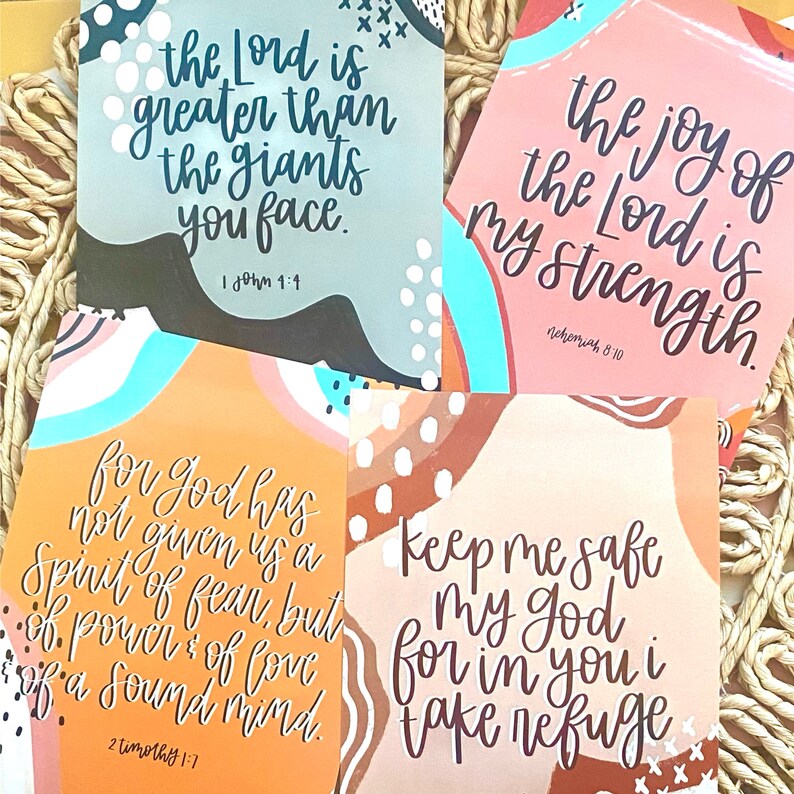 the Lord is
greater than
the giants
you face.
1 John 4:4
the joy of
the Lord is
my strength.
nehemiah 8:10
for God has
not given us a
spirit of fear, but
of power & of love
& of a sound mind.
2 timothy 1:7
keep me safe
my god
for in you i
take refuge